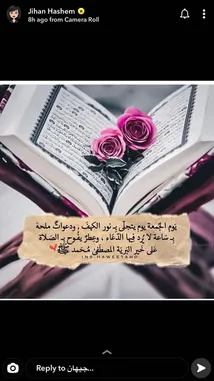 Jihan Hashem
8h ago from Camera Roll
يَوم الجُمعة يَوم يتجلّى بِـ نُور الكَهف ، ودعواتٌ ملحة
بِـ سَاعة لا يُرد فيها الدُعاء ، وعِطرٌ يفُوح بِـ الصَلاة
عَلى خَير البَريّة المصطفَى مُحمد ﷺ
Reply to ...جيهان